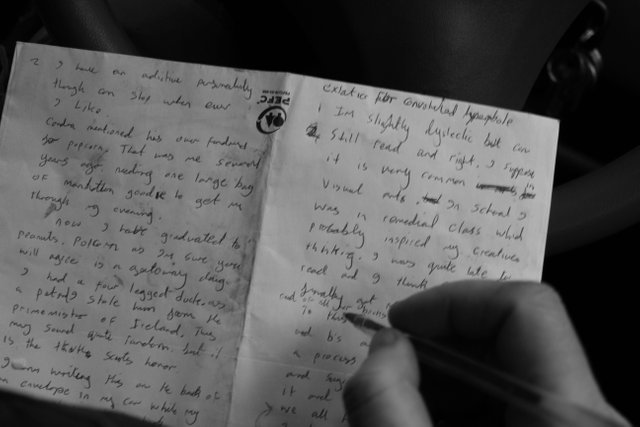 2 I have an adictive personality
though can stop when ever
I like.
Candra mentioned has our fondness
for popcorn. That was me several
years ago. needing one large bag
of manhattan goodie to get my
through my evening.
now I have graduated to
peanuts. popcorn as Im sure youse
will agree is a gateway drug.
I had a four legged duck. as
a pet. I stole him form the
primeminister of Ireland. This
may sound quite random. but it
is the truth scouts honor.
I am writing this on the back of
an envelope in my car while my
PEFC
extatica for convoluted hyperbole
1 Im slightly dyslectic but can
2 Still read and right. I suppose
it is very common in
Visual arts. In School I
was in remedial class which
probably inspired my creative
thinking. I was quite late to
read and I think
finally got
and of all
to this
and b's
a process
and
it and
we all